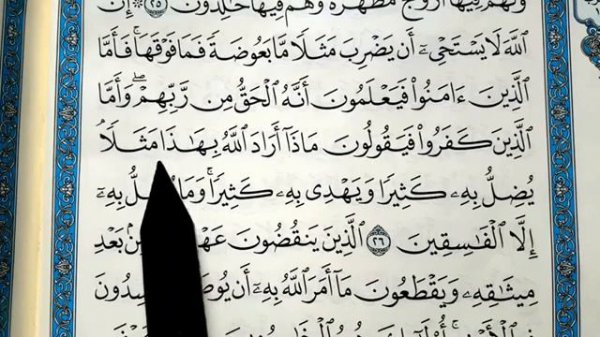 وَلَهُمْ فِيهَآ أَزْوَٰجٌ مُّطَهَّرَةٌ وَهُمْ فِيهَا خَٰلِدُونَ ٢٥ ۞ إِنَّ
ٱللَّهَ لَا يَسْتَحْىِۦٓ أَن يَضْرِبَ مَثَلًا مَّا بَعُوضَةً فَمَا فَوْقَهَا ۚ فَأَمَّا
ٱلَّذِينَ ءَامَنُوا۟ فَيَعْلَمُونَ أَنَّهُ ٱلْحَقُّ مِن رَّبِّهِمْ ۖ وَأَمَّا
ٱلَّذِينَ كَفَرُوا۟ فَيَقُولُونَ مَاذَآ أَرَادَ ٱللَّهُ بِهَٰذَا مَثَلًا ۘ
يُضِلُّ بِهِۦ كَثِيرًا وَيَهْدِى بِهِۦ كَثِيرًا ۚ وَمَا بِهِۦٓ
إِلَّا ٱلْفَٰسِقِينَ ٢٦ ٱلَّذِينَ يَنقُضُونَ بَعْدِ
مِيثَٰقِهِۦ وَيَقْطَعُونَ مَآ أَمَرَ ٱللَّهُ بِهِۦٓ أَن